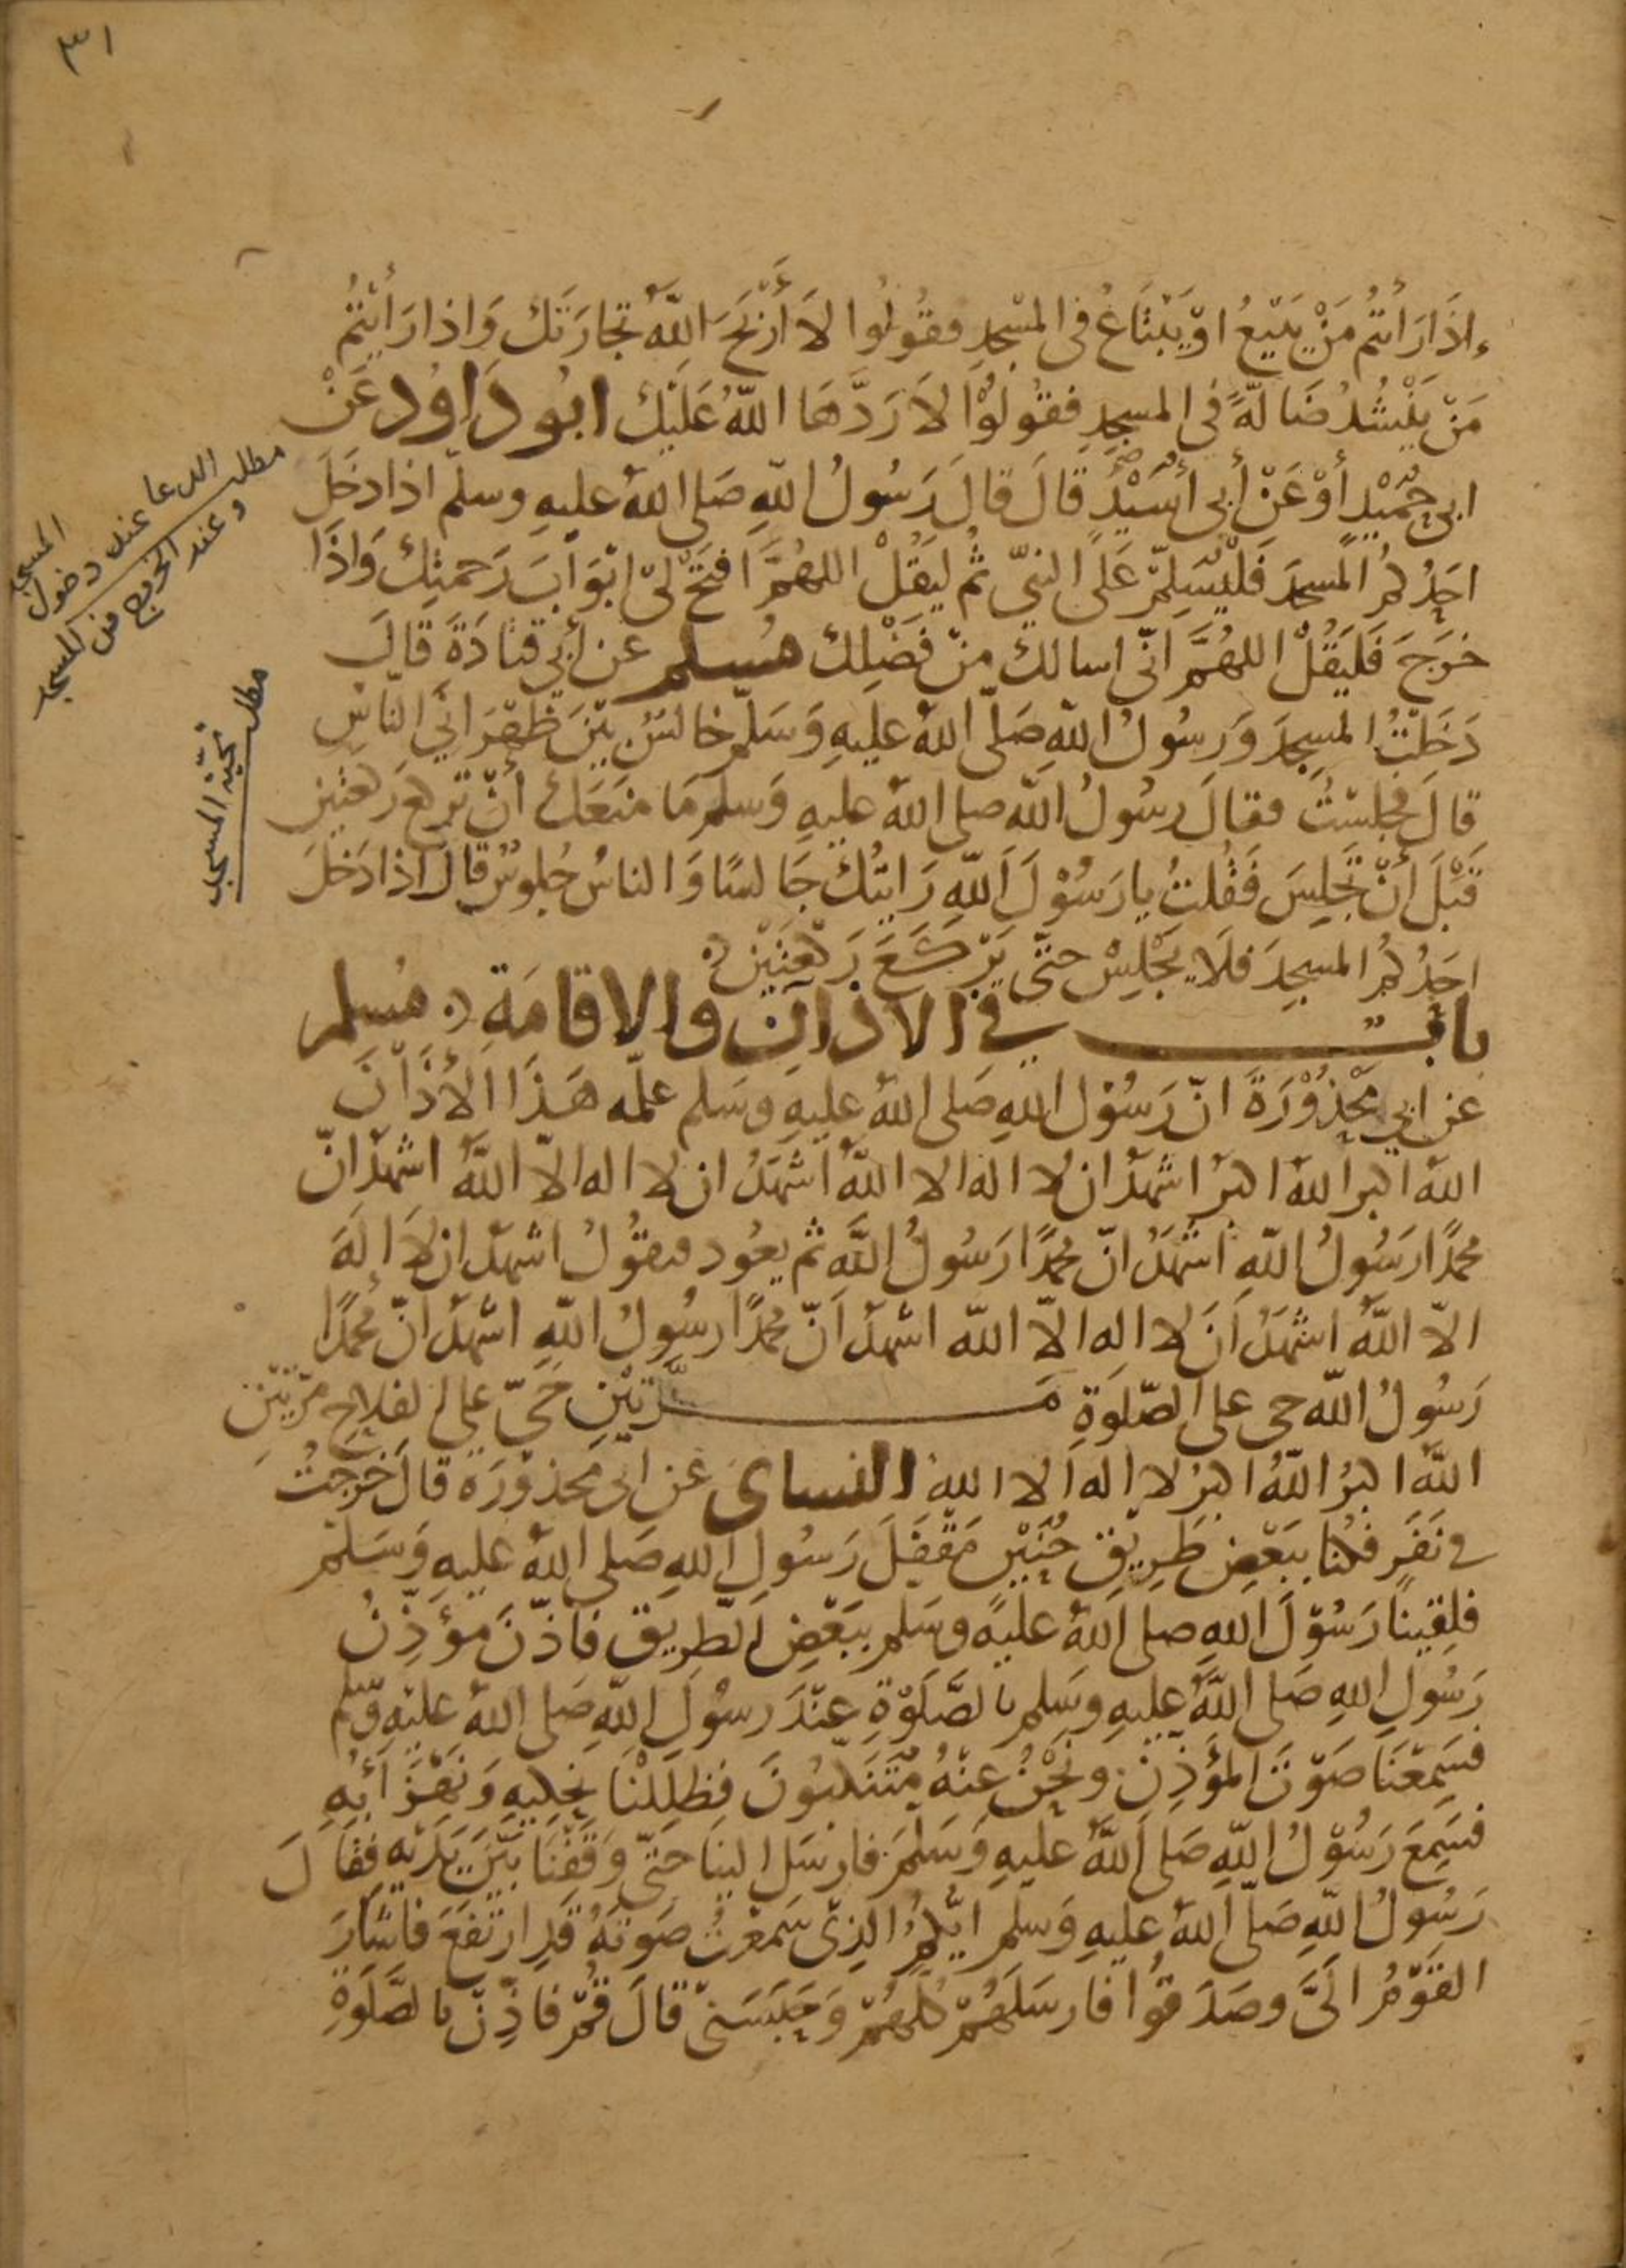 ٣١
إذَا رَأيتُم مَنْ يَبيْعُ اوْ يَبْتَاعُ في المسْجِدِ فقُولُوا لاَ أَرْبَحَ اللّٰهُ تجارَتَك وَاذا رَأيتُمُ
مَنْ يَنْشُدُ ضَالّةً في المسجِدِ فقُولُوْا لاَ رَدَّهَا اللّٰهُ عَلَيْك ابُو دَاوُد عَنْ
ابي حُمَيْدٍ أوْ عَنْ أبي أُسَيْدٍ قالَ قالَ رَسُولُ اللّٰهِ صَلى اللّٰهُ عليهِ وسلّم اذا دَخَلَ
احَدُكُمُ المَسجدَ فَلْيُسَلِمّْ عَلَى النبيّ ثم ليَقُلْ اللهُمَّ افتَحْ لىْ ابْوَابَ رَحمتِكَ وَاذَا
خَرَجَ فَليَقُلْ اللهُمَّ انّى اسالك مِنْ فَضْلِك مُسلم عن أبي قتادَةَ قالَ
دَخَلْتُ المسِجدَ وَرسُولُ اللّٰهِ صَلّى اللّٰهُ عليهِ وَسَلّم جالسٌ بيْنَ ظَهْرَانَيِ الناسِ
قالَ فجلسْتُ فقالَ رسُولُ اللّٰه صلى اللّٰهُ عليهِ وَسلم مَا منَعَكَ أنْ تركعَ ركعتين
قَبْلَ أنْ تَجْلِسَ فَقُلتُ يا رَسُوْلَ اللّٰهِ رَايتُكَ جَالسًا وَالناسُ جُلوسٌ قالَ اذا دَخَلَ
احَدُكُمُ المسجِدَ فلَا يَجْلِسْ حتّى يَرْكَعَ رَكعَتَيْنِ
بابٌ في الاذانِ والاقامَةِ مُسلم
عن ابي مَحْذُوْرَةَ انّ رَسُوْل اللّٰهِ صَلى اللّٰهُ عليهِ وسَلم علمّه هَذَا الأذَانَ
اللّٰهُ اكبر اللّٰهُ اكبرُ اشهدُ ان لا اله الا اللّٰهُ اشْهَدُ ان لا اله الّا اللّٰهُ اشهدُ انّ
محمدًا رَسُولُ اللّٰهِ اشْهَدُ انّ محمدًا رَسُولُ اللّٰه ثم يعُود فيقُولُ اشهدُ ان لاَ الَهَ
الّا اللّٰهُ اشْهَدُ أنَ لا اله الّا اللّٰه اشْهدُ أنّ محمدًا رسُولُ اللّٰهِ اشْهدُ انّ مُحمدًا
رَسُولُ اللّٰه حى على الصّلوةِ مَرَّتَيْنِ حَيّ على الفلاحِ مرّتيْنِ
اللّٰهُ اكبرُ اللّٰهُ اكبرُ لا اله الا اللّٰهُ النساى عن ابى محذوْرَه قالَ خرجتُ
في نَفَرٍ فكُنا ببَعْضِ طَرِيْقِ حُنَيْنٍ مَقْفَلَ رَسُولِ اللّٰهِ صَلى اللّٰهُ عليهِ وَسَلم
فلِقِينَا رَسُوْلَ اللّٰهِ صلى اللّٰهُ عليهِ وسَلم ببَعْضِ الطّرِيق فأذّنَ مؤَذِّنُ
رَسُولِ اللّٰهِ صَلى اللّٰهُ عليهِ وسَلم بالصَّلوْةِ عِنْدَ رسُولِ اللّٰهِ صَلى اللّٰهُ عليْهِ وسّلم
فسَمِعْنَا صَوْتَ المؤَذِنِ ونَحْنُ عنْهُ مُتَنَكّبُونَ فظَلِلْنَا نَحْكِيهِ وَنَهْزَأ بهِ
فسَمِعَ رَسُوْلُ اللّٰهِ صَلى اللّٰهُ عليهِ وَسَلمَ فارسَل الينا حَتىّ وَقَفْنَا بيْنَ يَدَيْهِ فقَالَ
رَسُولُ اللّٰهِ صَلّى اللّٰهُ عليهِ وَسلم ايّكمُ الذِى سَمعْتُ صَوتهُ قَدِ ارتَفَعَ فاشَارَ
القَوْمُ الَىَّ وصَدَقوُا فارسَلَهُمْ كلّهُمْ وَحَبَسَنىْ قالَ قُمْ فاذِّنْ بالصَّلوةِ
مطلب الدعا عند دخول المسجد
وعند الخروج من المسجد
مطلب تحيّة المسجد